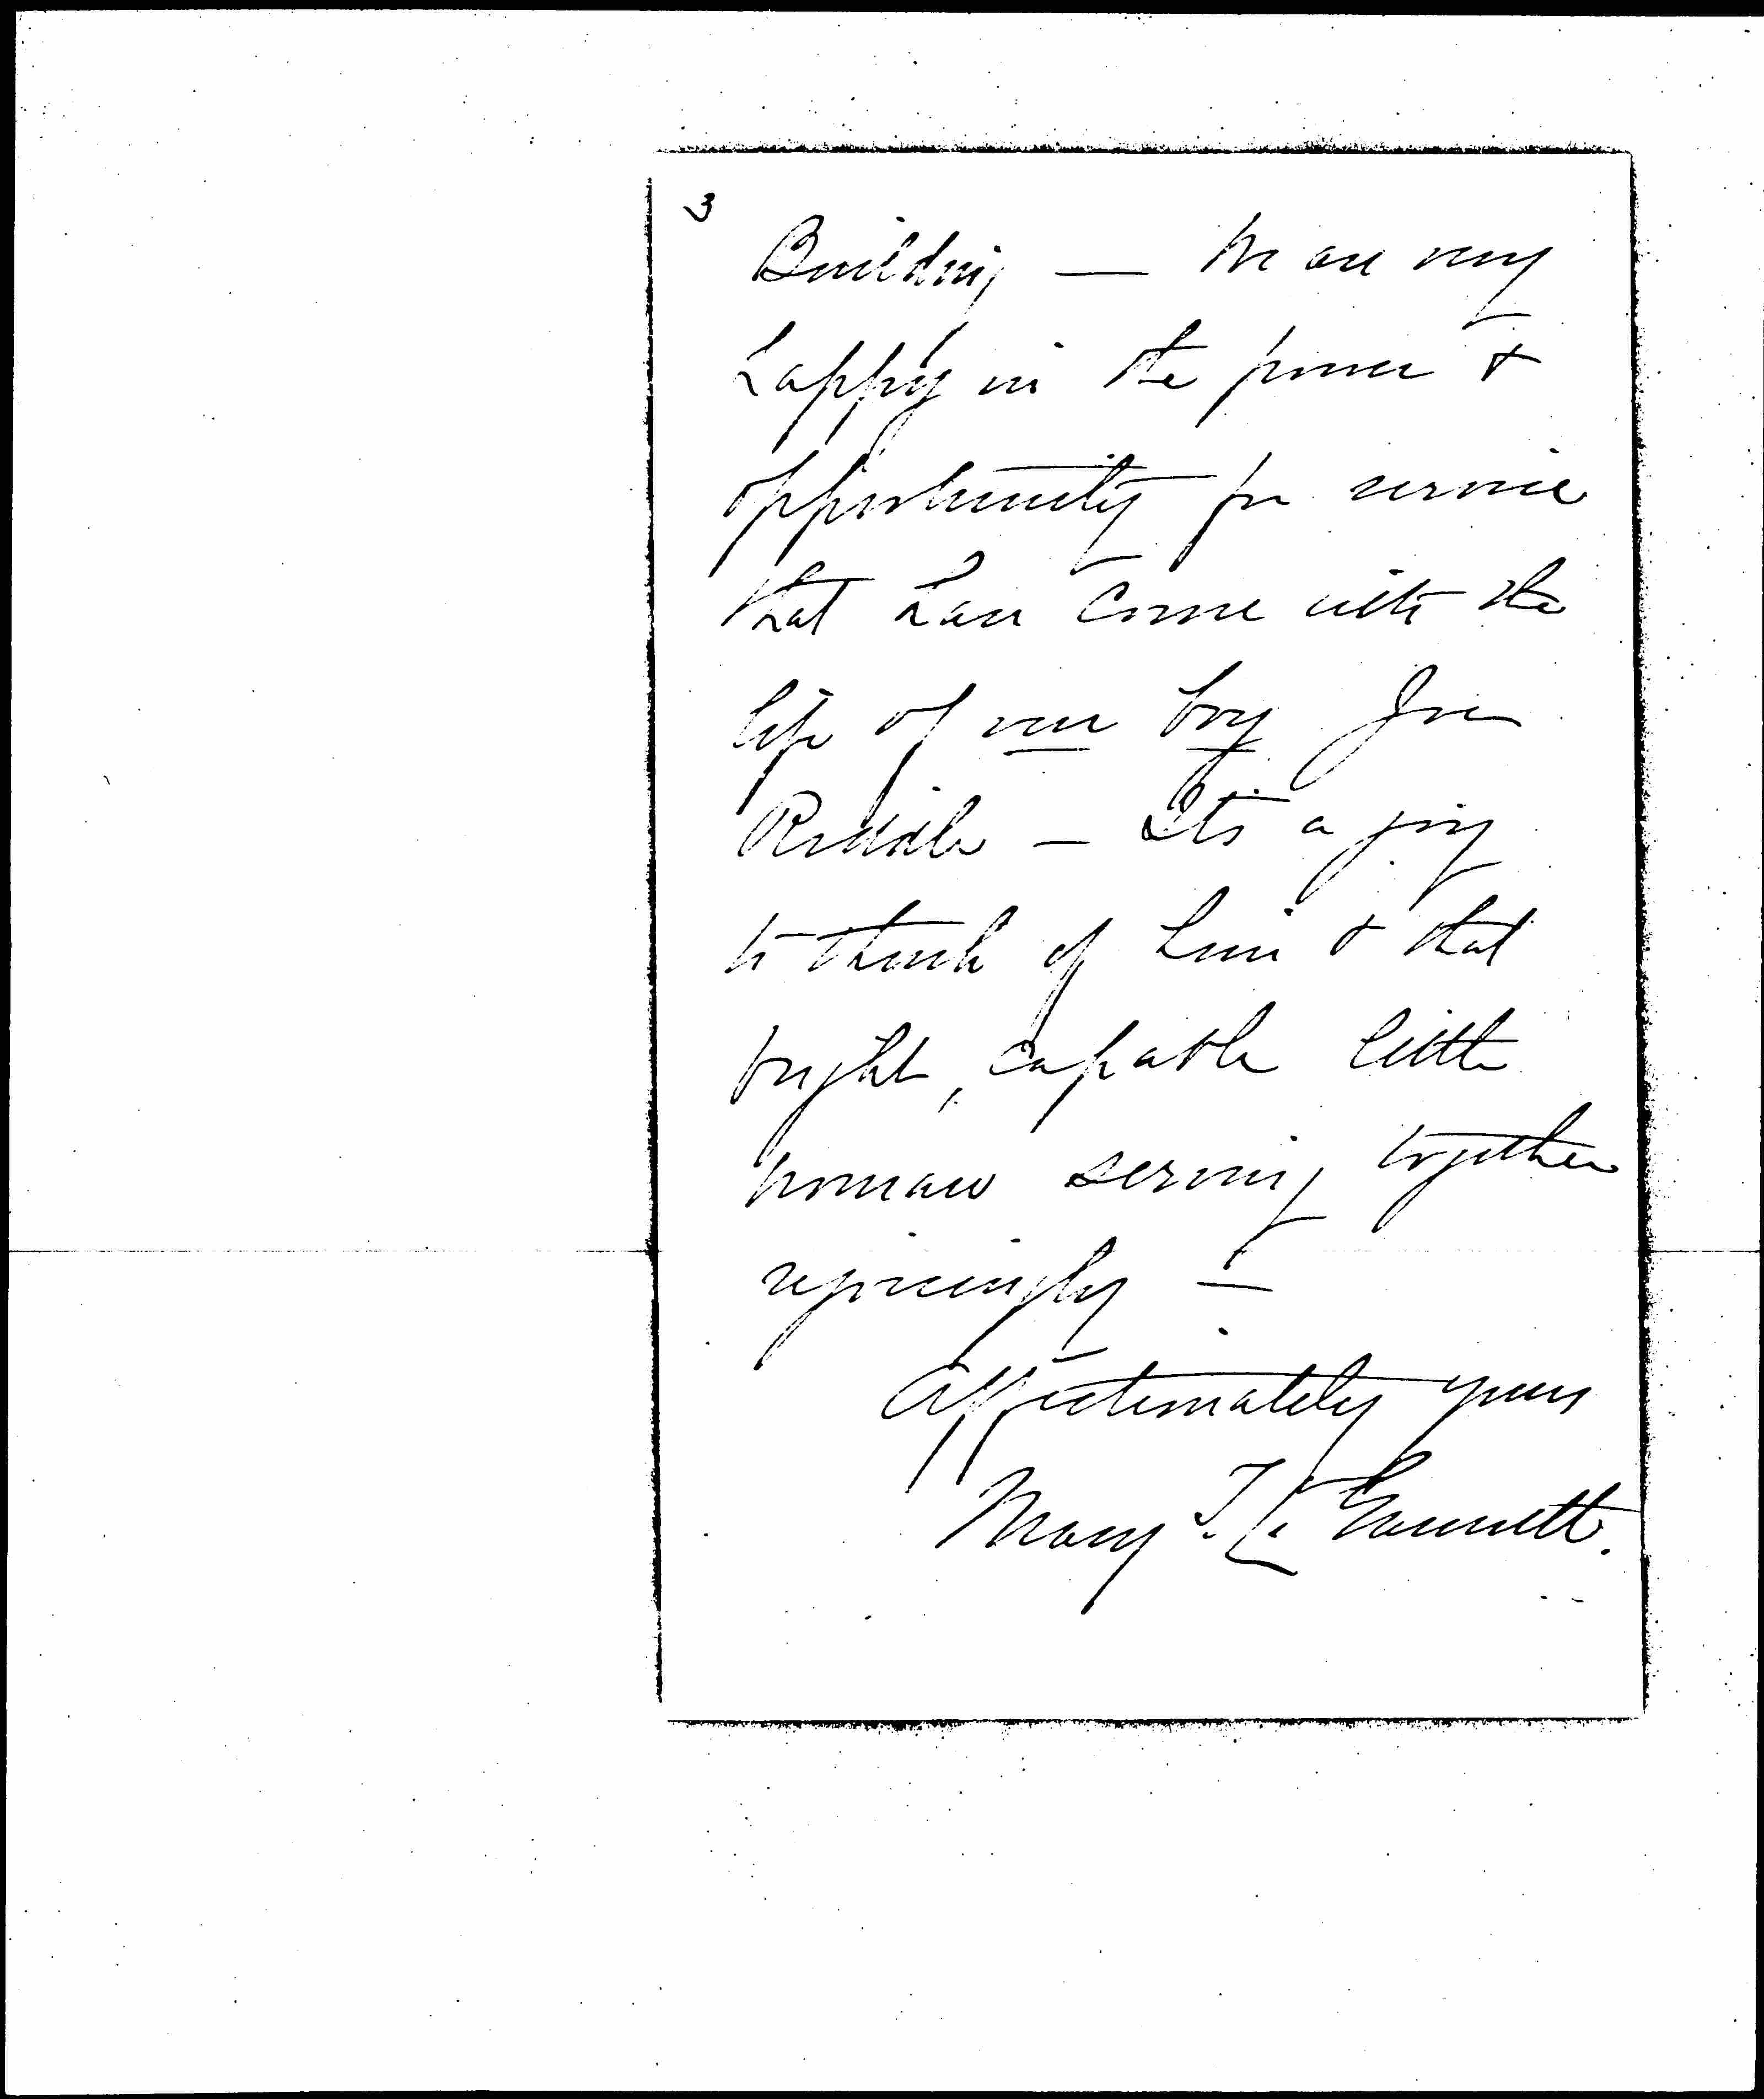 3
Building — We are very
happy in the power &
opportunity for service
that have come with the
life of our boy Joe
Riddle — It's a joy
to think of him & that
bright, capable little
woman serving together
rejoicingly —
Affectionately yours
Mary T. L. Gannett.